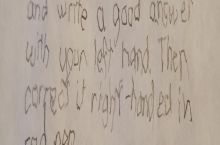 and write a good answer
with your left hand. Then
correct it right-handed in
red pen